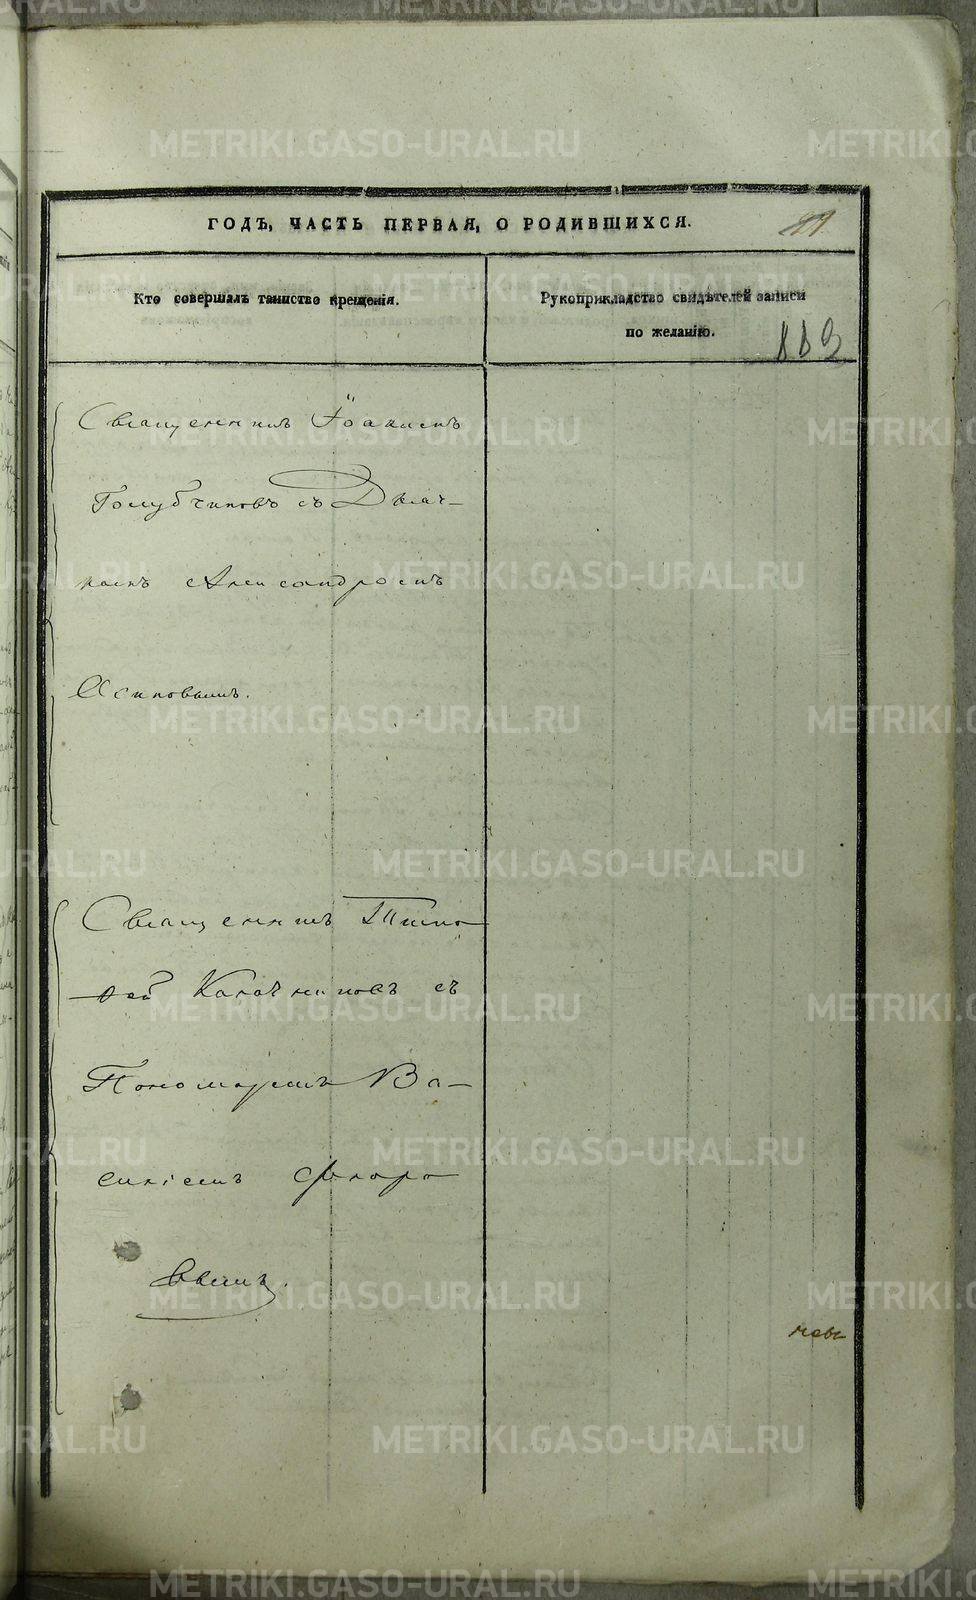 ГОДЪ, ЧАСТЬ ПЕРВАЯ, О РОДИВШИХСЯ.
Кто совершалъ таинство крещенія.
Рукоприкладство свидѣтелей записи
по желанію.
Священникъ Іоакимъ
Голубчиковъ съ Дьяч-
комъ Александромъ
Осиповымъ.
Священникъ Тимо
ѳей Калачниковъ съ
Пономаремъ Ва-
силіемъ Флоро
вымъ.
METRIKI.GASO-URAL.RU